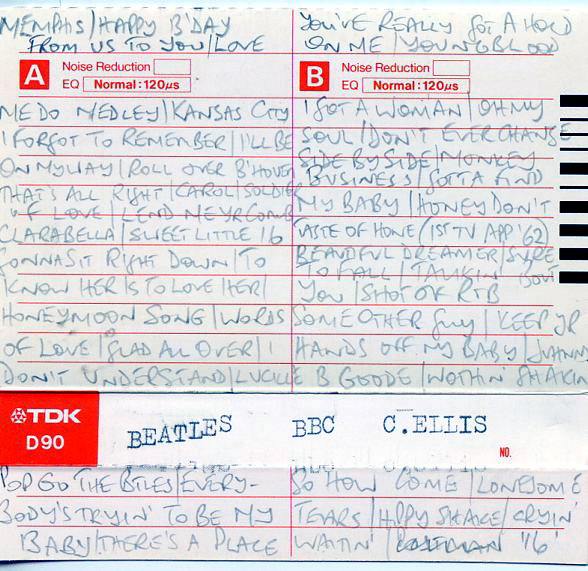 MEMPHIS/HAPPY B'DAY
FROM US TO YOU/LOVE
A Noise Reduction
EQ Normal:120μs
ME DO MEDLEY/KANSAS CITY
I FORGOT TO REMEMBER/I'LL BE
ON MY WAY/ROLL OVER B'HOVEN
THAT'S ALL RIGHT/CAROL/SOLDIER
OF LOVE/LEND ME YR COMB
CLARABELLA/SWEET LITTLE 16
GONNA SIT RIGHT DOWN/TO
KNOW HER IS TO LOVE HER/
HONEYMOON SONG/WORDS
OF LOVE/GLAD ALL OVER/I
DON'T UNDERSTAND/LUCILLE
YOU'VE REALLY GOT A HOLD
ON ME/YOUNGBLOOD
B Noise Reduction
EQ Normal:120μs
I GOT A WOMAN/OH MY
SOUL/DON'T EVER CHANGE
SIDE BY SIDE/MONKEY
BUSINESS/GOTTA FIND
MY BABY/HONEY DON'T
TASTE OF HONEY (1ST TV APP '62)
BEAUTIFUL DREAMER/SURE
TO FALL/TALKIN' BOUT
YOU/SHOT OF R+B
SOME OTHER GUY/KEEP YR
HANDS OFF MY BABY/JOHNNY
B GOODE/NOTHIN' SHAKIN
TDK
D90
BEATLES BBC C.ELLIS
NO.
POP GO THE BTLES/EVERY-
BODY'S TRYIN' TO BE MY
BABY/THERE'S A PLACE
SO HOW COME/LONESOME
TEARS/HPPY SHAKE/CRYIN'
WAITIN'/POSTMAN '16'